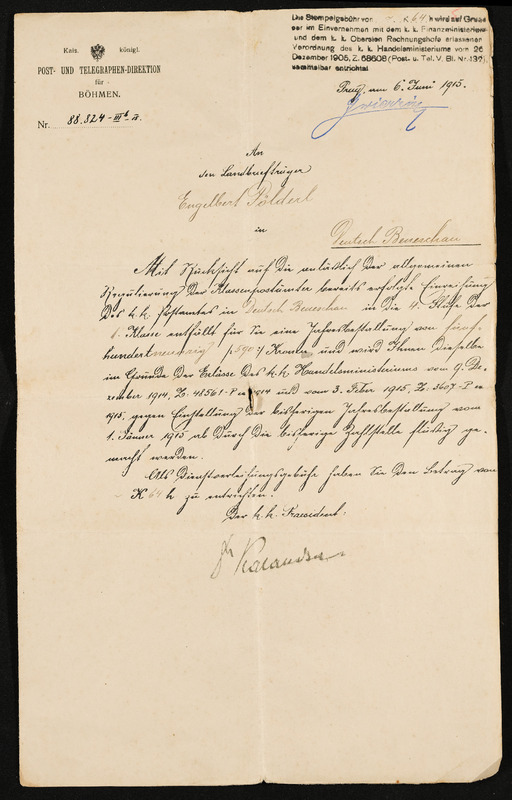 Kais. königl.
POST- UND TELEGRAPHEN-DIREKTION
für
BÖHMEN.
Nr. 88.824-III
Die Stempelgebühr von K 64 h wird auf Grund
der im Einvernehmen mit dem k. k. Finanzministerium
und dem k. k. Obersten Rechnungshofe erlassenen
Verordnung des k. k. Handelsministeriums vom 26
Dezember 1905, Z. 68608 (Post- u. Tel. V. Bl. Nr. 137)
unmittelbar entrichtet
Prag, am 6. Juni 1915.
An
den Landbriefträger
Engelbert Pölderl
in
Deutsch Beneschau
Mit Rücksicht auf die anläßlich der allgemeinen
Regulierung der Klassenpostämter bereits erfolgte Einreihung
des k.k. Postamtes in Deutsch Beneschau in die 4. Stufe der
Klasse entfällt für Sie eine Jahresbestallung von fünf-
hundertneunzig /:590:/ Kronen und wird Ihnen dieselbe
im Grunde der Erlässe des k.k. Handelsministeriums vom 9. De-
zember 1914, Z. 48561-P und vom 3. Feber 1915, Z. 3607-P
1915, gegen Einstellung der bisherigen Jahresbestallung vom
1. Jänner 1915 ab durch die bisherige Zahlstelle flüssig ge-
macht werden.
Als Dienstverleihungsgebühr haben Sie den Betrag von
K 64 h zu entrichten.
Der k.k. Praesident: